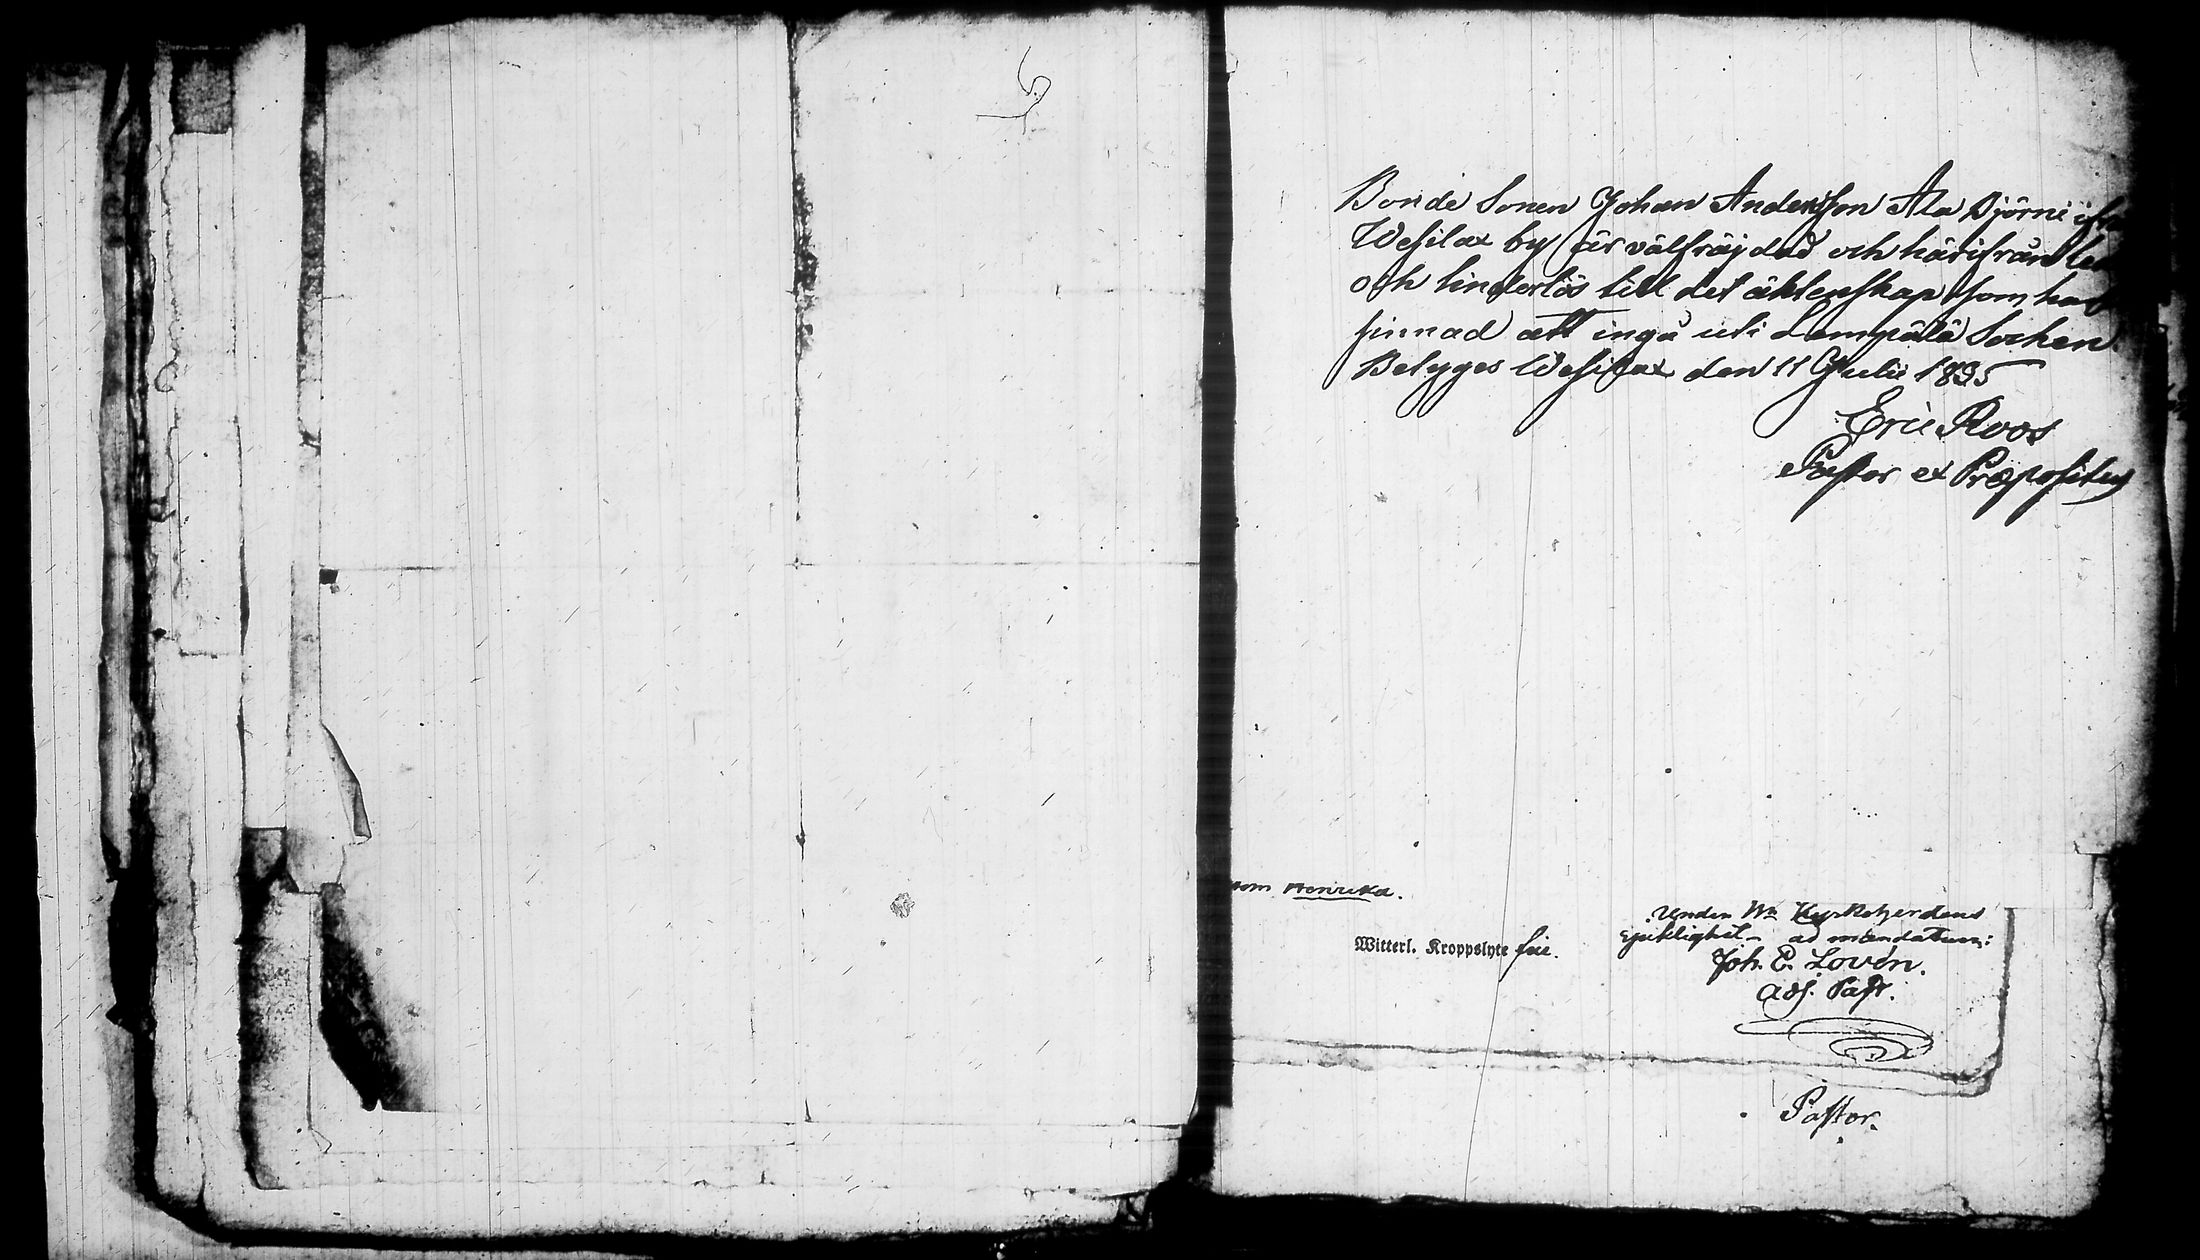 Bonde Sonen Johan Andersson Ala Björni ifrån
Wesilax by är välfräjdad och härifrån led
och hinderlös till det äktenskap som han
sinnad att ingå uti Lempälä Sochen.
Betyges Wesilax den 11 Julii 1835
Eric Roos
Pastor et Præpositus
som Henrica.
Under Hr Kyrkoherdens
sjuklighet ad mandatum:
Witterl. Kroppslyte fri.
Joh. E. Lovén.
adj. Past.
Pastor.